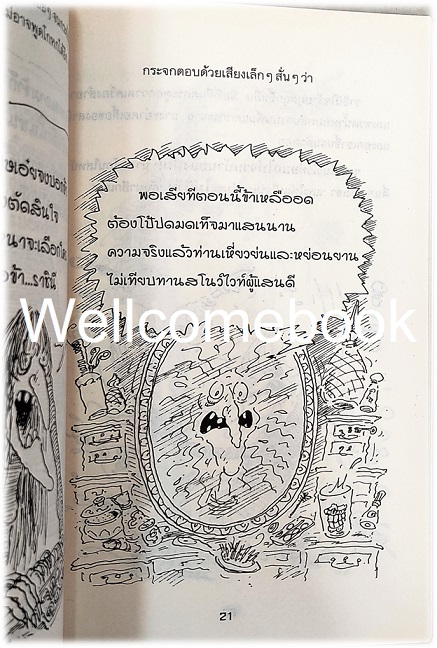 กระจกตอบด้วยเสียงเล็ก ๆ สั่น ๆ ว่า
พอเสียทีตอนนี้ข้าเหลืออด
ต้องโป้ปดมดเท็จมาแสนนาน
ความจริงแล้วท่านเหี่ยวย่นและหย่อนยาน
ไม่เทียบทานสโนว์ไวท์ผู้แสนดี
Wellcomebook
21